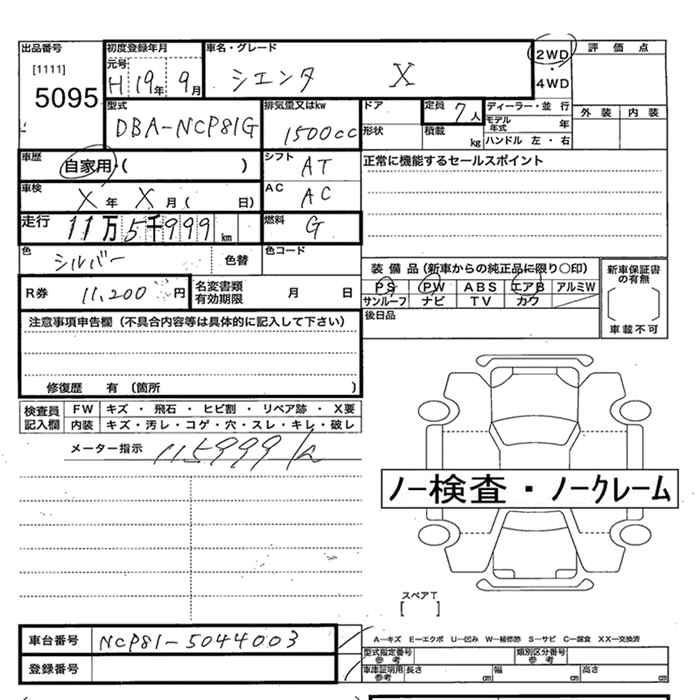 出品番号
[1111]
5095
初度登録年月
元号
H 19年 9月
車名・グレード
シエンタ X
2WD
・
4WD
評価点
外装 内装
型式
DBA-NCP81G
排気量又はkw
1500cc
ドア
形状
定員 7人
積載 kg
ディーラー・並行
モデル年式 年
ハンドル 左・右
車歴
自家用・( )
シフト
AT
正常に機能するセールスポイント
車検
X 年 X 月 ( 日)
AC
AC
走行
11万5千999km
燃料
G
色
シルバー
色替
色コード
装備品(新車からの純正品に限り〇印)
PS PW ABS エアB アルミW
サンルーフ ナビ TV カワ
新車保証書の有無
車載不可
R券 11,200円
名変書類有効期限 月 日
後日品
注意事項申告欄(不具合内容等は具体的に記入して下さい)
修復歴 有 (箇所 )
検査員記入欄
FW キズ・飛石・ヒビ割・リペア跡・X要
内装 キズ・汚レ・コゲ・穴・スレ・キレ・破レ
メーター指示 115999k
ノー検査・ノークレーム
スペアT
[ ]
車台番号 NCP81-5044003
登録番号
A―キズ E―エクボ U―凹み W―補修跡 S―サビ C―腐食 XX―交換済
型式指定番号 参考
類別区分番号 参考
車庫証明用 参考 長さ cm 幅 cm 高さ cm